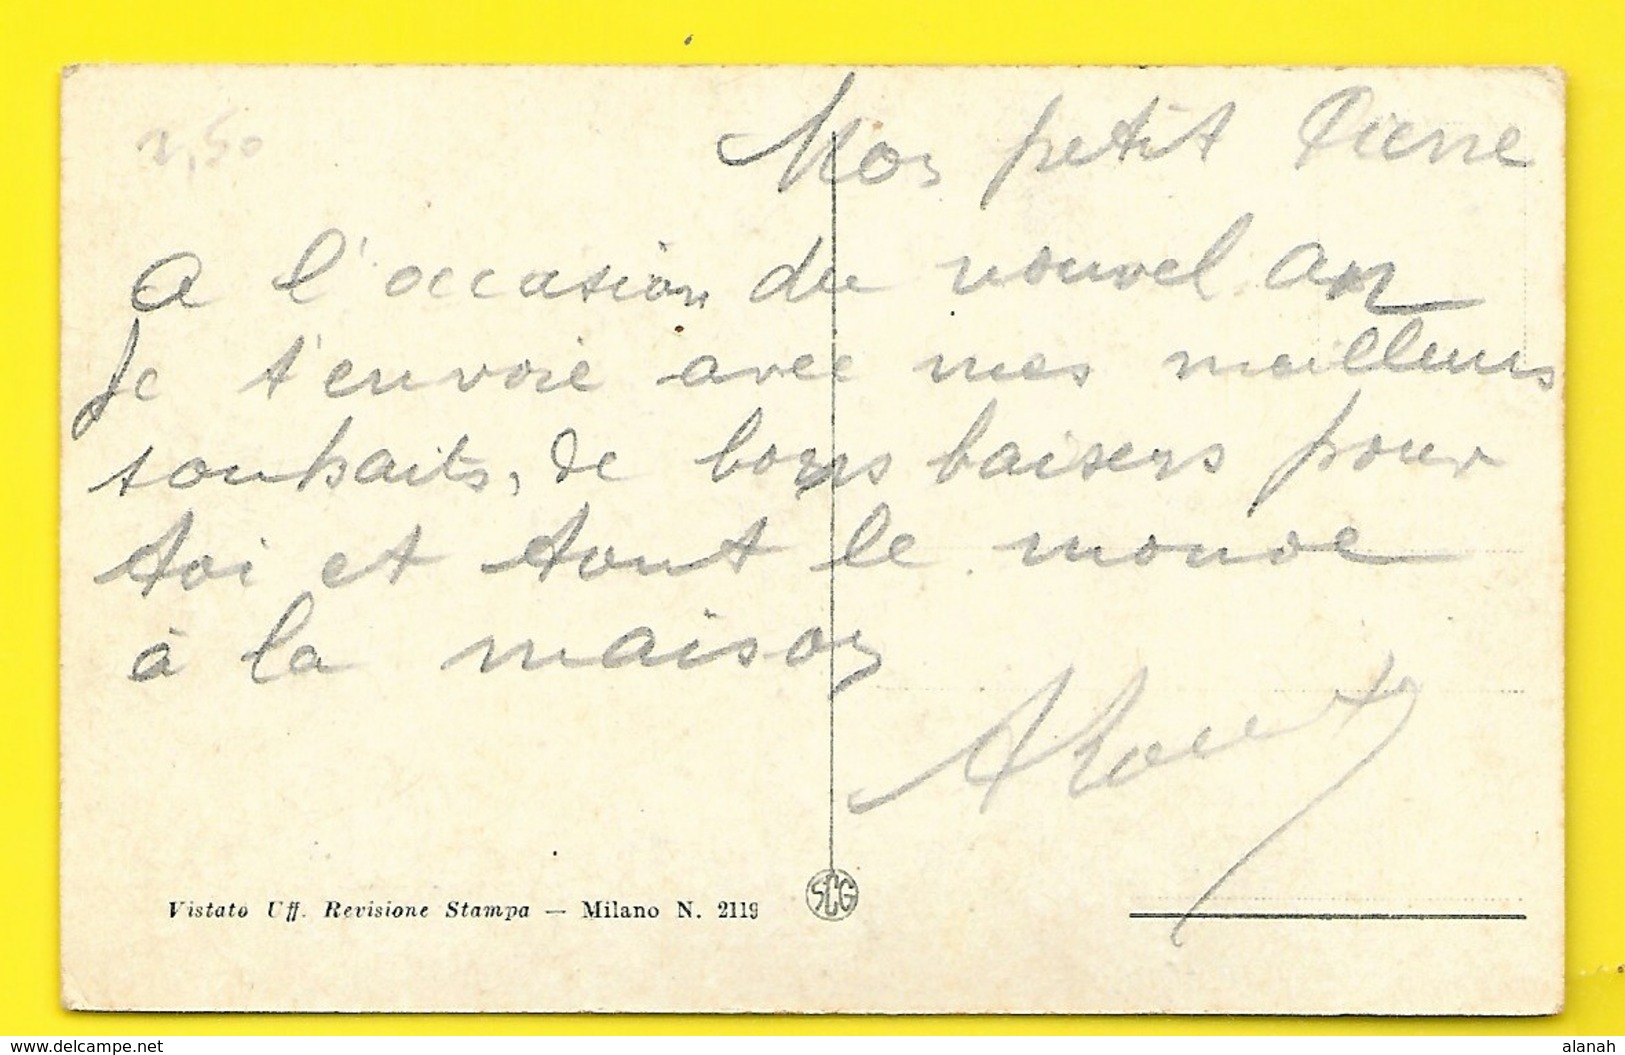 2,50
Mon petit Pierre
A l'occasion du nouvel an
Je t'envoie avec mes meilleurs
souhaits, de bons baisers pour
toi et tout le monde
à la maison
Vistato Uff. Revisione Stampa — Milano N. 2119
SCG
www.delcampe.net
alanah